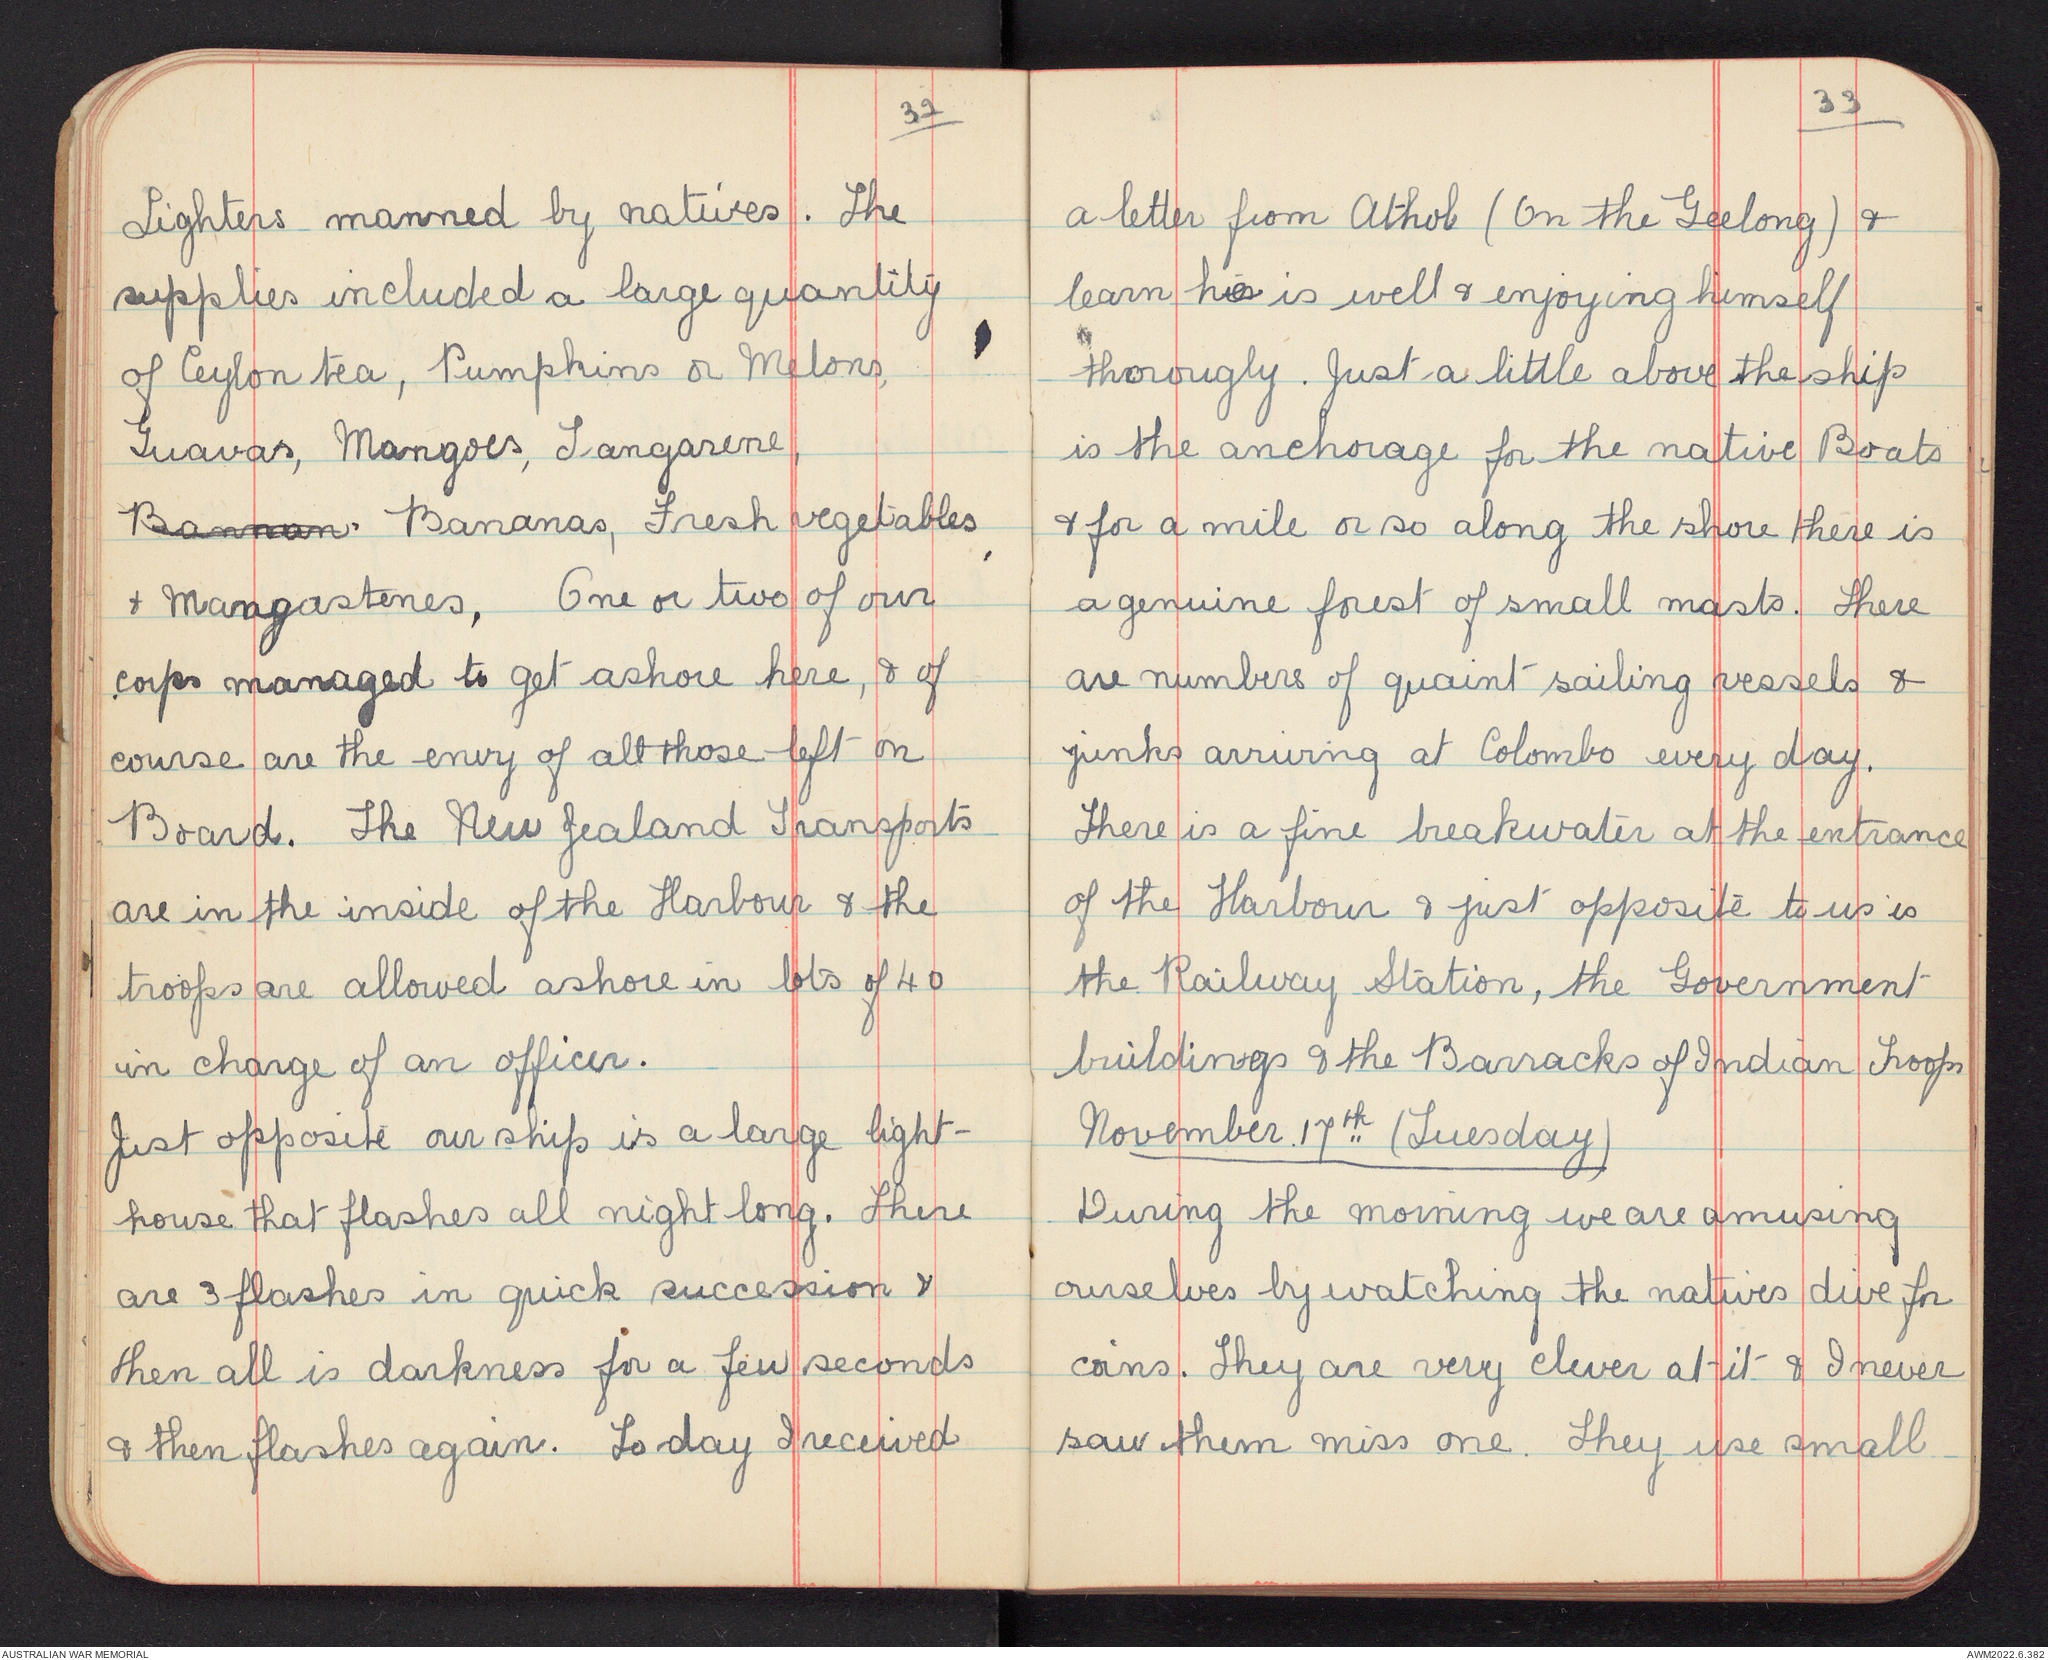 32
Lighters manned by natives. The
supplies included a large quantity
of Ceylon tea, Pumpkins or Melons,
Guavas, Mangoes, Tangarene,
Bannan. Bananas, Fresh vegetables,
& Mangastenes, One or two of our
corps managed to get ashore here, & of
course are the envy of all those left on
Board. The New Zealand Transports
are in the inside of the Harbour & the
troops are allowed ashore in lots of 40
in charge of an officer.
Just opposite our ship is a large light-
house that flashes all night long. There
are 3 flashes in quick succession &
then all is darkness for a few seconds
& then flashes again. To day I received
33
a letter from Athol (On the Geelong) &
learn he is well & enjoying himself
thorougly. Just a little above the ship
is the anchorage for the native Boats
& for a mile or so along the shore there is
a genuine forest of small masts. There
are numbers of quaint sailing vessels &
junks arriving at Colombo every day.
There is a fine breakwater at the entrance
of the Harbour & just opposite to us is
the Railway Station, the Government
buildings & the Barracks of Indian Troops
November. 17th (Tuesday)
During the morning we are amusing
ourselves by watching the natives dive for
coins. They are very clever at it & I never
saw them miss one. They use small
AUSTRALIAN WAR MEMORIAL
AWM2022.6.382